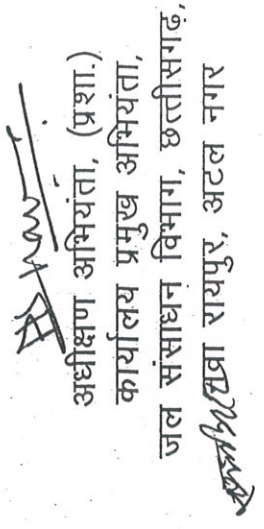 अधीक्षण अभियंता, (प्रशा.)
कार्यालय प्रमुख अभियंता,
जल संसाधन विभाग, छत्तीसगढ़,
नवा रायपुर, अटल नगर